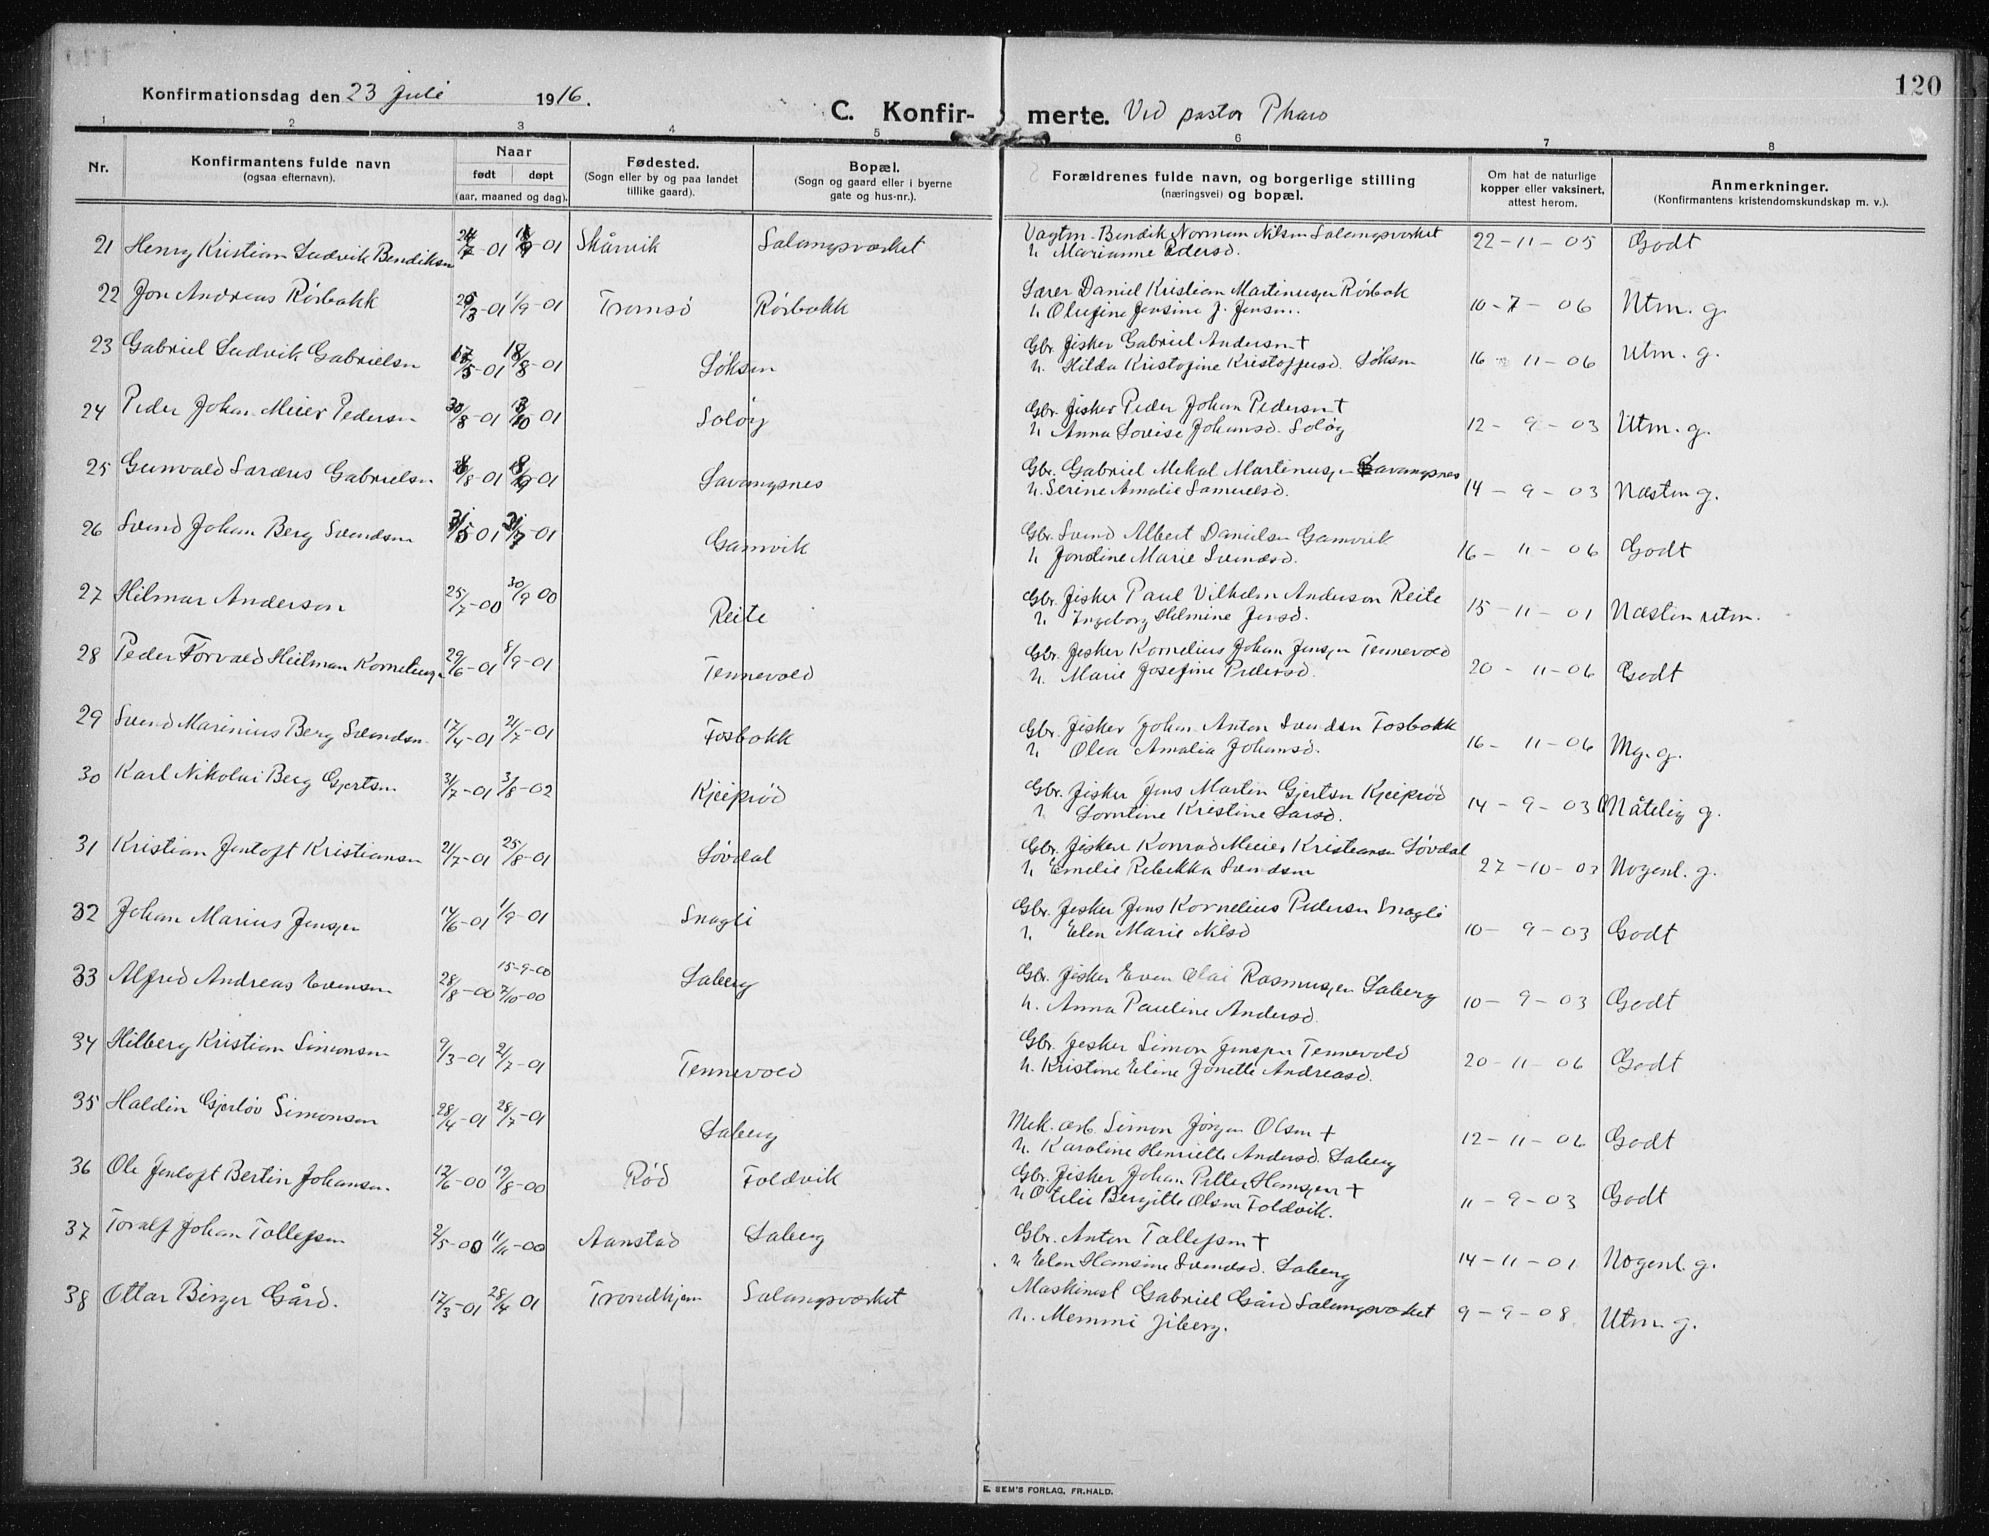 120
Konfirmationsdag den 23 juli 1916.
C. Konfir- merte. Ved pastor Pharo
1 2 3 4 5 6 7 8
Nr. Konfirmantens fulde navn (ogsaa efternavn). Naar født døpt (aar, maaned og dag). Fødested. (Sogn eller by og paa landet tillike gaard). Bopæl. (Sogn og gaard eller i byerne gate og hus-nr.). Forældrenes fulde navn, og borgerlige stilling (næringsvei) og bopæl. Om hat de naturlige kopper eller vaksinert, attest herom. Anmerkninger. (Konfirmantens kristendomskundskap m. v.).
21 Henry Kristian Ludvik Bendiksn 7-01 9-01 Skårvik Salangsverket Vagtm. Bendik Norman Nilsen Salangsverket 22-11-05 Godt
h. Marianne Pedersd.
22 Jon Andreas Rörbakk 3-01 1/9-01 Tromsö Rörbakk Lærer Daniel Kristian Martinussen Rörbak 10-7-06 Utm. g.
h. Olufine Jensine J. Jensen.
23 Gabriel Ludvik Gabrielsn 17/5-01 18/8-01 Löksen Gbr. fisker Gabriel Andersn + 16-11-06 Utm. g.
h. Hilda Kristofine Kristoffersd. Löksn
24 Peder Johan Meier Pedersn 30/8-01 10-01 Solöy Gbr. fisker Peder Johan Pedersn + 12-9-03 Utm. g.
h. Anna Lovise Johansd. Solöy
25 Gunvald Laræus Gabrielsn 8-01 9-01 Lavangsnes Gbr. Gabriel Mekal Martinusen Lavangsnes 14-9-03 Næstm g.
h. Serine Amalie Samuelsd.
26 Svend Johan Berg Svendsn 31/5 01 31/7-01 Gamvik Gbr. Svend Albert Danielsn Gamvik 16-11-06 Godt
h. Jondine Marie Svendsd.
27 Hilmar Anderson 25/7-00 30/9 00 Reite Gbr. fisker Paul Vilhelm Anderson Reite 15-11-01 Næsten utm.
h. Ingeborg Helmine Jensd.
28 Peder Torvald Heitman Korneliussn 29/6-01 8/9-01 Tennevold Gbr. fisker Kornelius Johan Jensen Tennevold 20-11-06 Godt
h. Marie Josefine Pedersd.
29 Svend Marinius Berg Svendsn 17/4-01 21/7-01 Fosbakk Gbr. fisker Johan Anton Svendsn Fosbakk 16-11-06 Mg. g.
h. Olea Amalia Johansd.
30 Karl Nikolai Berg Gjertsn 31/7-01 3/8-02 Kjeiprød Gbr. fisker Jens Martin Gjertsn Kjeiprød 14-9-03 Måtelig g.
h. Lorntine Kristine Larsd.
31 Kristian Jentoft Kristiansn 21/7-01 25/8-01 Lövdal Gbr. fisker Konrad Meier Kristiansn Lövdal 27-10-03 Nogenl. g.
h. Emelie Rebekka Svendsn
32 Johan Marius Jensen 14/6-01 1/9-01 Snagli Gbr. fisker Jens Kornelius Pedersn Snagli 10-9-03 Godt
h. Elen Marie Nilsd
33 Alfred Andreas Evensn 28/8-00 15-9-00 7/10-00 Laberg Gbr. fisker Even Olai Rasmusen Laberg 10-9-03 Godt
h. Anna Pauline Andersd.
34 Hilberg Kristian Simonsn 9/3-01 21/7-01 Tennevold Gbr. fisker Simon Jensen Tennevold 20-11-06 Godt
h. Kristine Eline Jonette Andreasd.
35 Haldin Gjerlöv Simonsen 28/4-01 28/7-01 Laberg Mek. arb. Simon Jörgen Olsen + 12-11-06 Godt
h. Karoline Henriette Andersd. Laberg
36 Ole Jentoft Bertin Johansen 12/6-00 19/8-00 Rød Foldvik Gbr. fisker Johan Petter Hansen + 11-9-03 Godt
h. Otelie Bergitte Olsen Foldvik.
37 Toralf Johan Tollefsen 2/5-00 11/11-00 Aanstad Laberg Gbr. Anton Tollefsen + 14-11-01 Nogenl. g.
h. Elen Hansine Svendsd. Laberg
38 Ottar Birger Gård. 12/3-01 28/4 01 Trondhjem Salangsverket Maskinist Gabriel Gård Salangsverket 9-9-08 Utm. g.
h. Memmi Fiberg.
E. SEM'S FORLAG, FR.HALD.